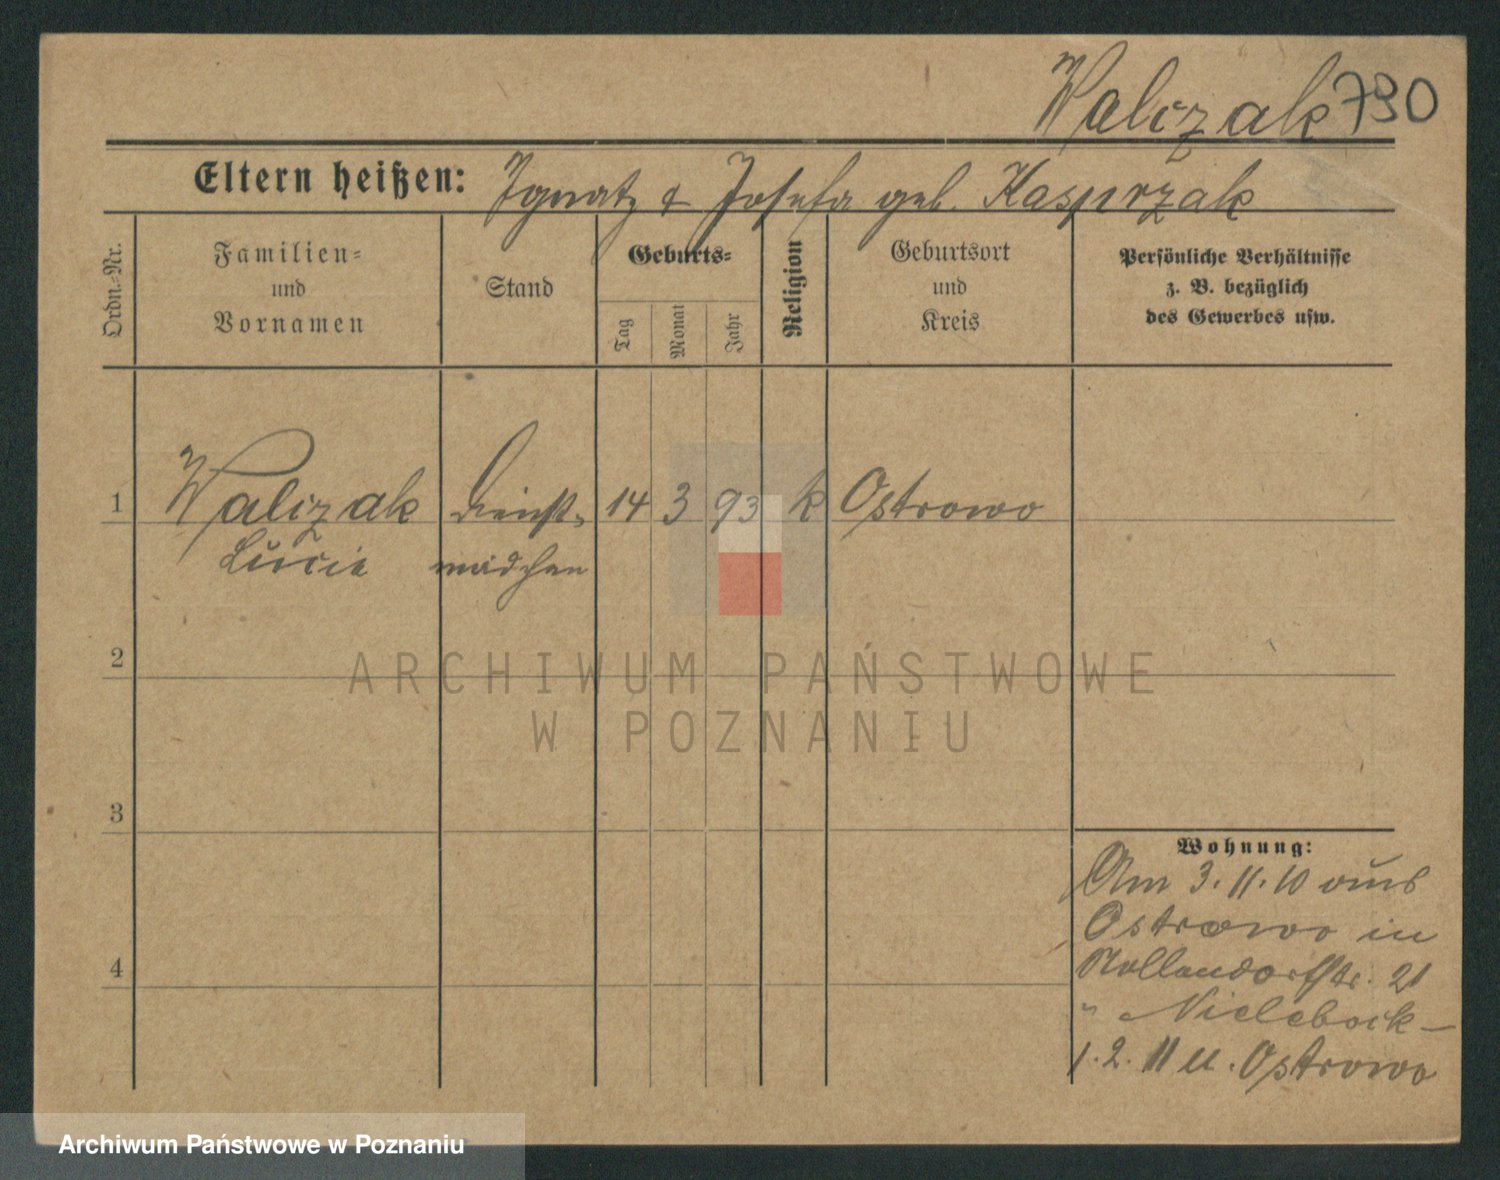 Walczak 790
Eltern heißen: Ignatz & Josefa geb. Kasprzak
Ordn.-Nr.
Familien-
und
Vornamen
Stand
Geburts-
Tag
Monat
Jahr
Religion
Geburtsort
und
Kreis
Persönliche Verhältnisse
z. B. bezüglich
des Gewerbes usw.
1 Walczak Dienst- 14 3 93 k Ostrowo
Lucie mädchen
2
ARCHIWUM PAŃSTWOWE
W POZNANIU
3
Wohnung:
Am 3.11.10 aus
Ostrowo in
4
Nollendorfstr. 21
" Nielebock –
1.2.11 u. Ostrowo
Archiwum Państwowe w Poznaniu